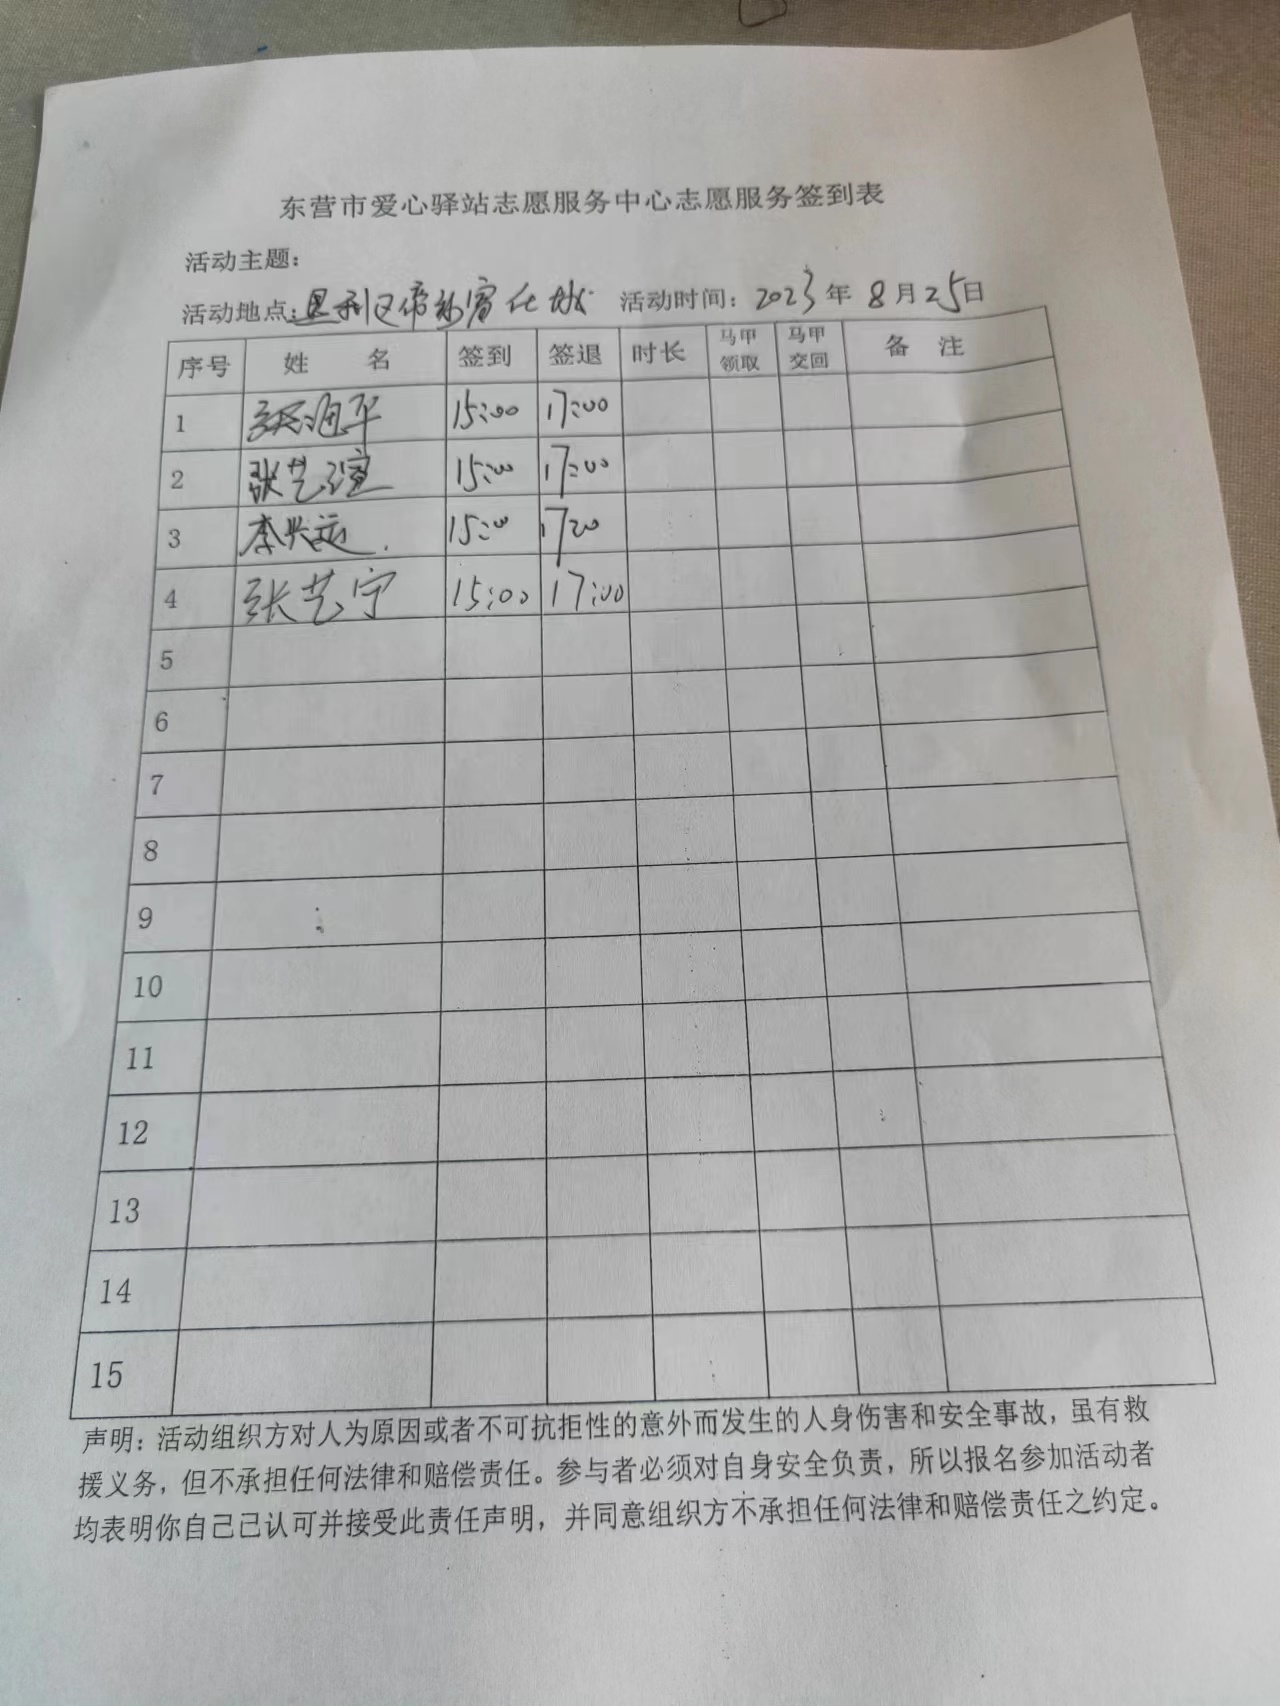 东营市爱心驿站志愿服务中心志愿服务签到表
活动主题：
活动地点：垦利区 活动时间：2023年8月25日
序号 姓 名 签到 签退 时长 马甲领取 马甲交回 备 注
1 15:00 17:00
2 张艺瑄 15:00 17:00
3 李兴运 15:00 17:00
4 张艺宁 15:00 17:00
5
6
7
8
9
10
11
12
13
14
15
声明：活动组织方对人为原因或者不可抗拒性的意外而发生的人身伤害和安全事故，虽有救
援义务，但不承担任何法律和赔偿责任。参与者必须对自身安全负责，所以报名参加活动者
均表明你自己已认可并接受此责任声明，并同意组织方不承担任何法律和赔偿责任之约定。